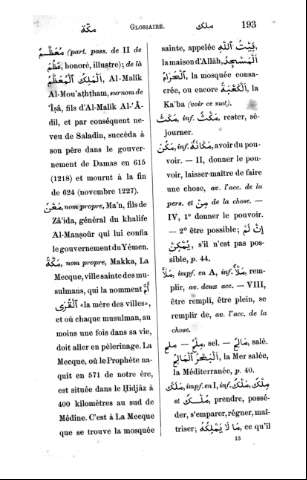 مكّة
GLOSSAIRE.
ملك
193
مُعَظَّم (part. pass. de II de
عظم, honoré, illustre); de là
اَلْمَلِكُ ٱلْمُعَظَّم, Al-Malik
Al-Mou'aththam, surnom de
'Îsâ, fils d'Al-Malik Al-'Â-
dil, et par conséquent ne-
veu de Saladin, succéda à
son père dans le gouver-
nement de Damas en 615
(1218) et mourut à la fin
de 624 (novembre 1227).
مَعْن, nom propre, Ma'n, fils de
Zâ'ida, général du khalife
Al-Manṣoûr qui lui confia
le gouvernement du Yémen.
مَكَّة, nom propre, Makka, La
Mecque, ville sainte des mu-
sulmans, qui la nomment أُمّ
ٱلْقُرَى «la mère des villes»,
et où chaque musulman, au
moins une fois dans sa vie,
doit aller en pèlerinage. La
Mecque, où le Prophète na-
quit en 571 de notre ère,
est située dans le Ḥidjâz à
400 kilomètres au sud de
Médine. C'est à La Mecque
que se trouve la mosquée
sainte, appelée بَيْتُ ٱللّٰهِ,
la maison d'Allâh, اَلْمَسْجِدُ
ٱلْحَرَامُ, la mosquée consa-
crée, ou encore اَلْكَعْبَةُ, la
Ka'ba (voir ce mot).
مَكَثَ, inf. مُكْث, rester, sé-
journer.
مَكُنَ, inf. مَكَانَة, avoir du pou-
voir. — II, donner le pou-
voir, laisser maître de faire
une chose, av. l'acc. de la
pers. et مِنْ de la chose. —
IV, 1° donner le pouvoir.
— 2° être possible; إِنْ لَمْ
يُمْكِنْ, s'il n'est pas pos-
sible, p. 44.
مَلَأَ, impf. en A, inf. مَلْء, rem-
plir, av. deux acc. — VIII,
être rempli, être plein, se
remplir de, av. l'acc. de la
chose.
مِلْح, sel. — مَالِح, salé.
اَلْبَحْرُ ٱلْمَالِحُ, la Mer salée,
la Méditerranée, p. 40.
مَلَكَ, impf. en I, inf. مَلْك, مِلْك
et مُلْك, prendre, possé-
der, s'emparer, régner, maî-
triser; مَا لَا يَمْلِكُهُ, ce qu'il
13